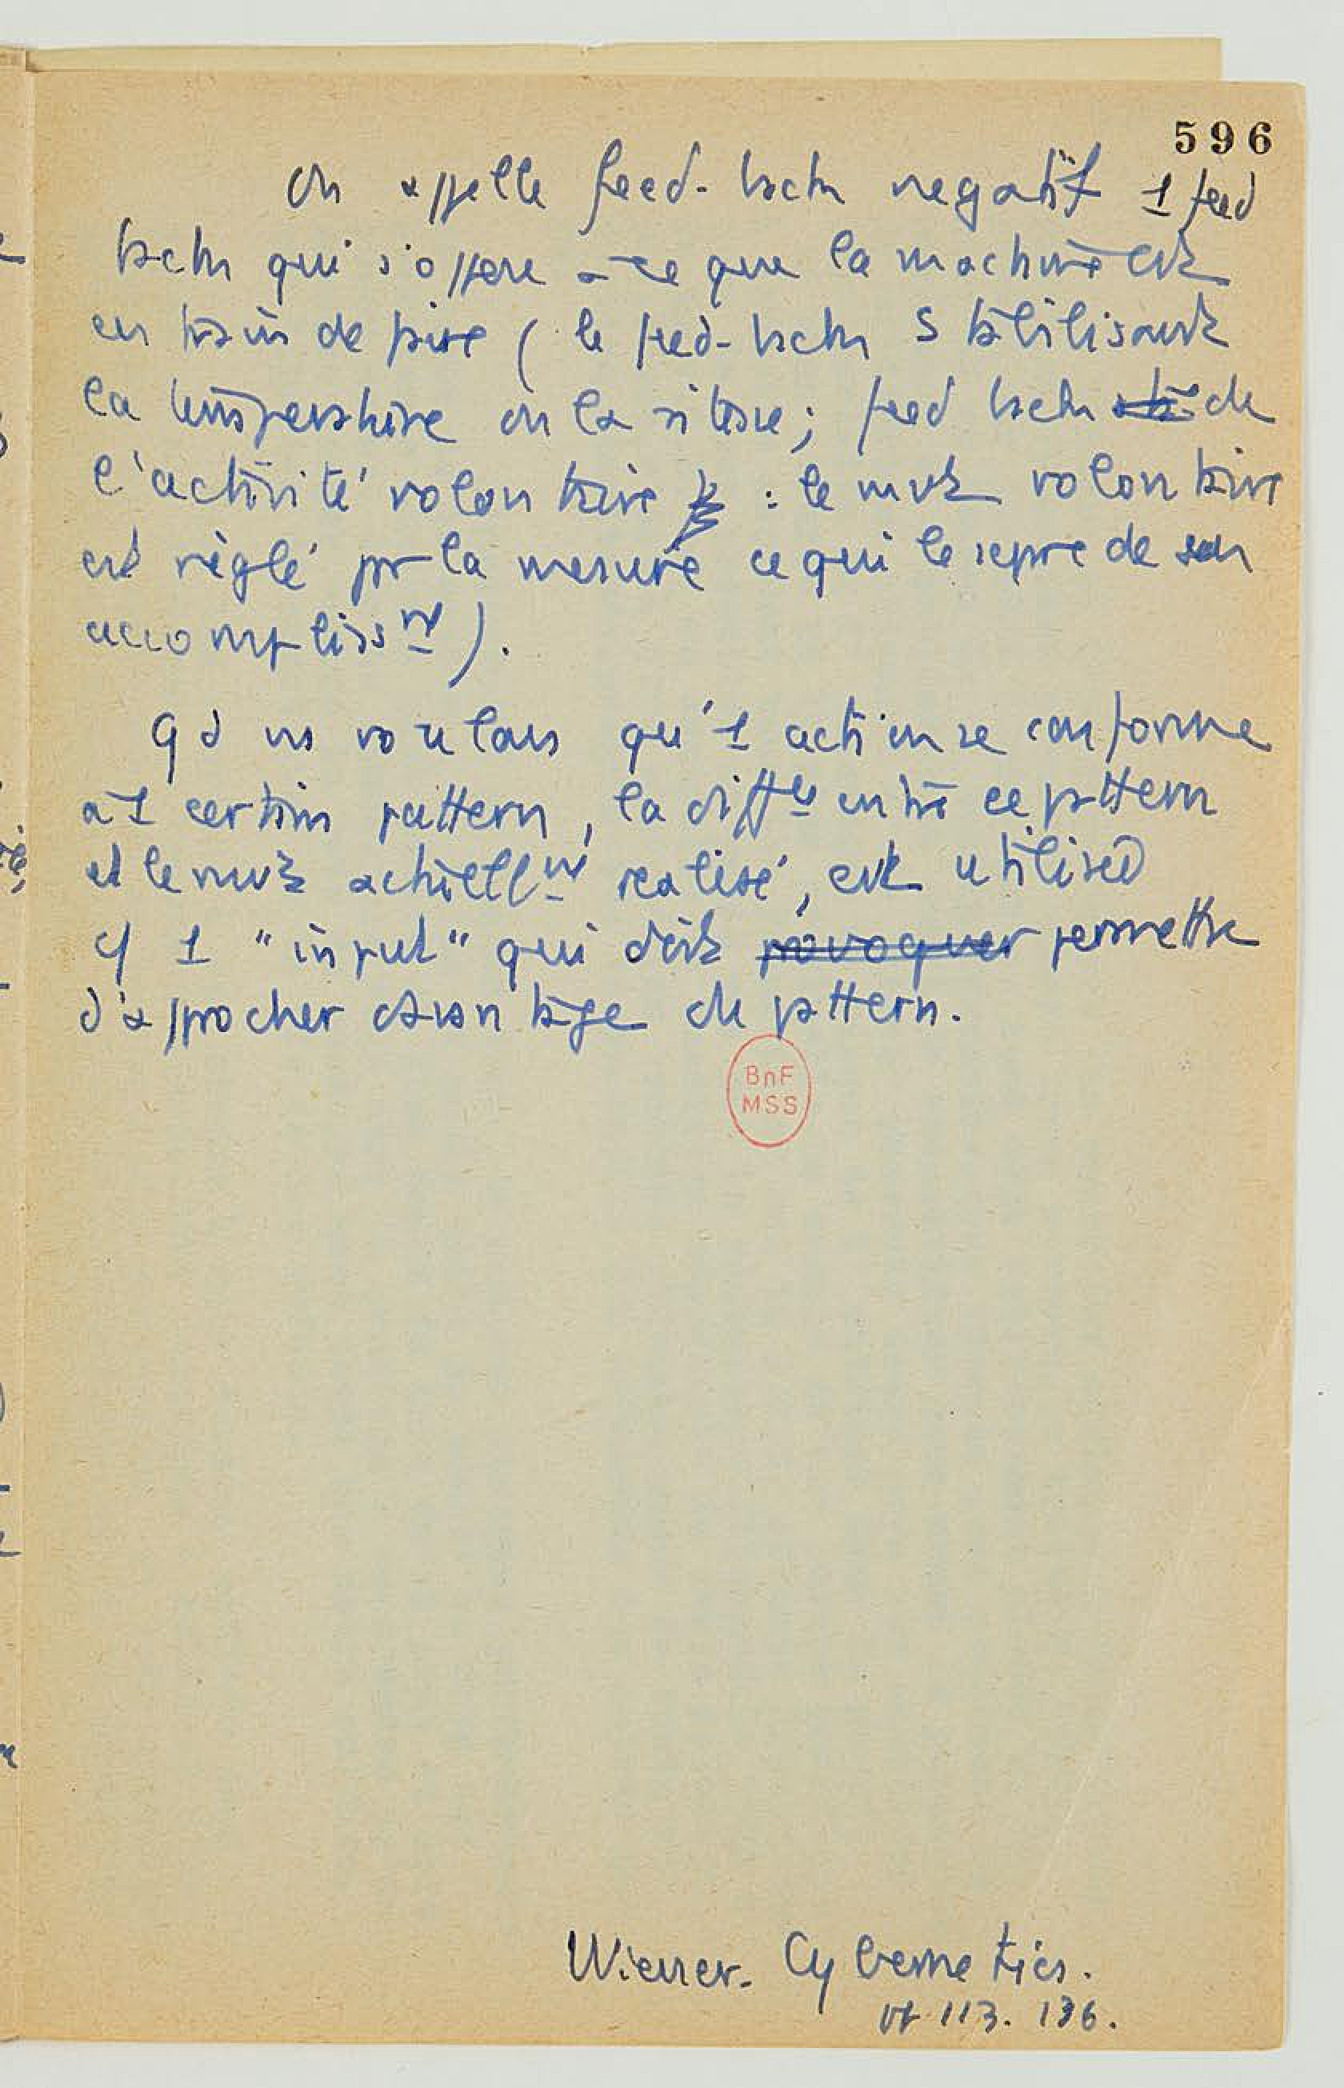 596
On appelle feed-back negatif 1 feed
back qui s'oppose à ce que la machine est
en train de faire ( le feed-back stabilisant
la température ou la vitesse ; feed back de
l'activité volontaire : le mvt volontaire
est règlé par la mesure ce qui le sépare de son
accomplissmt ).
Qd ns voulons qu'1 action se conforme
à 1 certain pattern, la diffce entre ce pattern
et le mvt actuellmt réalisé, est utilisée
cf 1 "input" qui doit provoquer permettre
d'approcher davantage du pattern.
BnF
MSS
Wiener. Cybernetics.
113. 136.